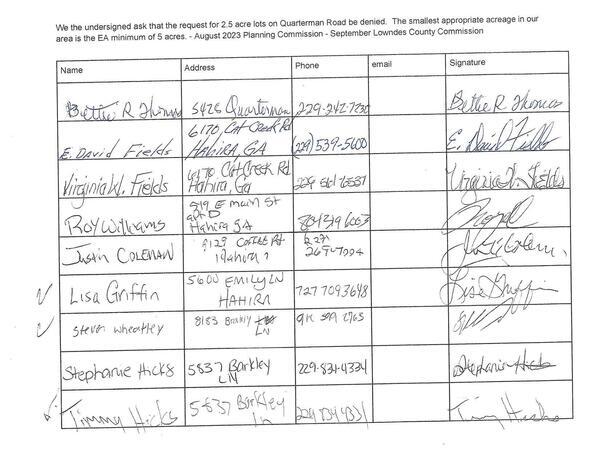 We the undersigned ask that the request for 2.5 acre lots on Quarterman Road be denied. The smallest appropriate acreage in our
area is the EA minimum of 5 acres. - August 2023 Planning Commission - September Lowndes County Commission
Name Address Phone email Signature
Bettie R Thomas 5426 Quarterman 229-242-7230 Bettie R Thomas
E. David Fields 6170 Cat Creek Rd Hahira, GA (229) 539-5600 E. David Fields
Virginia W. Fields 6170 Cat Creek Rd Hahira, Ga 229 Virginia W. Fields
Roy Williams E main St Hahira GA
Justin Coleman Rd Hahira
Lisa Griffin 5600 Emily LN HAHIRA 727 709 3648 Lisa Griffin
Steven Wheatley 8183 Barkley LN
Stephanie Hicks 5837 Barkley LN 229-834-4334 Stephanie Hicks
Timmy Hicks 5837 Barkley Ln 229 834 4331 Timmy Hicks